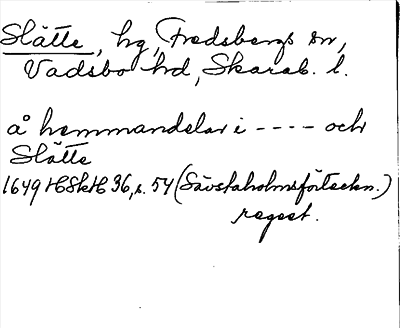 Slätte, hg, Fredsbergs sn,
Vadsbo hd, Skarab. l.
å hemmandelar i - - - - och
Slätte
1649 HSkH 36, s. 54 (Sävstaholmsförteckn.)
regest.